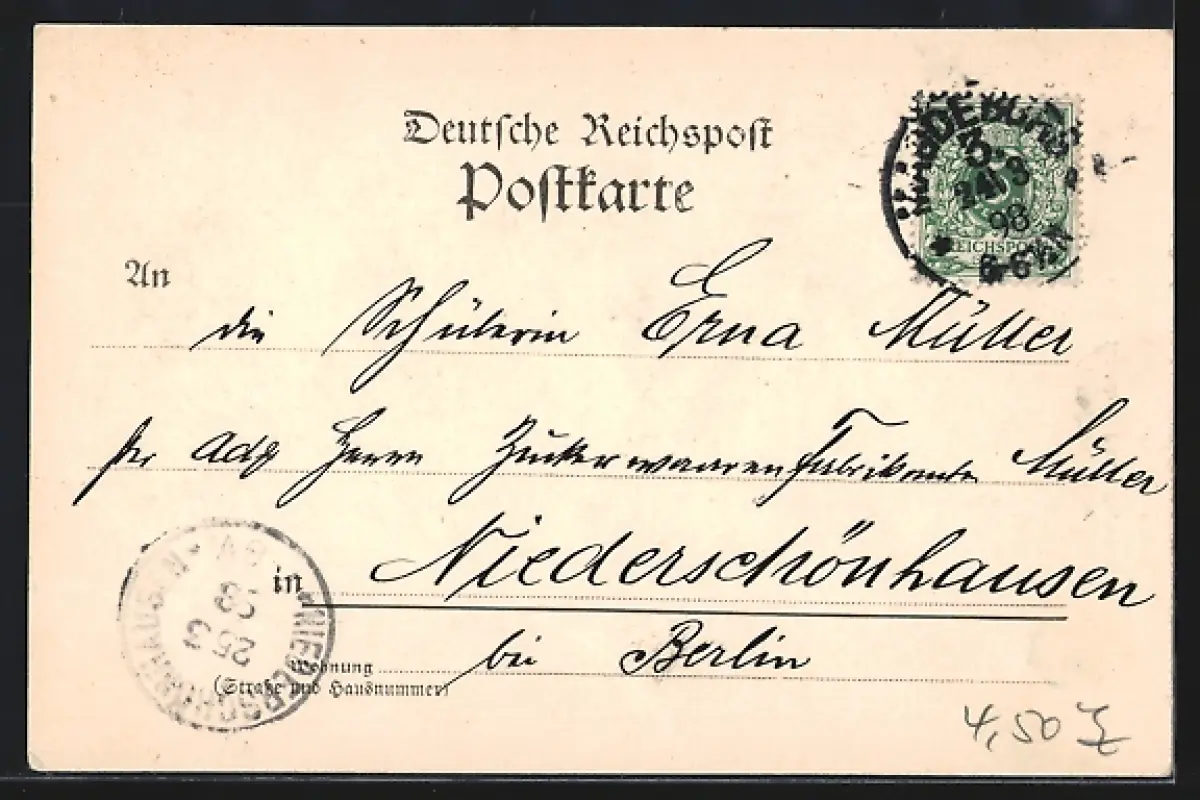 Deutsche Reichspost
Postkarte
MAGDEBURG
3.
24/3
98
6-6½N
REICHSPOST
An
die Schülerin Erna Müller
per Adr Herrn Zuckerwaarenfabrikanten Müller
in Niederschönhausen
bei Berlin
Wohnung
(Straße und Hausnummer)
NIEDERSCHÖNHAUSEN
25 3
98
4,50